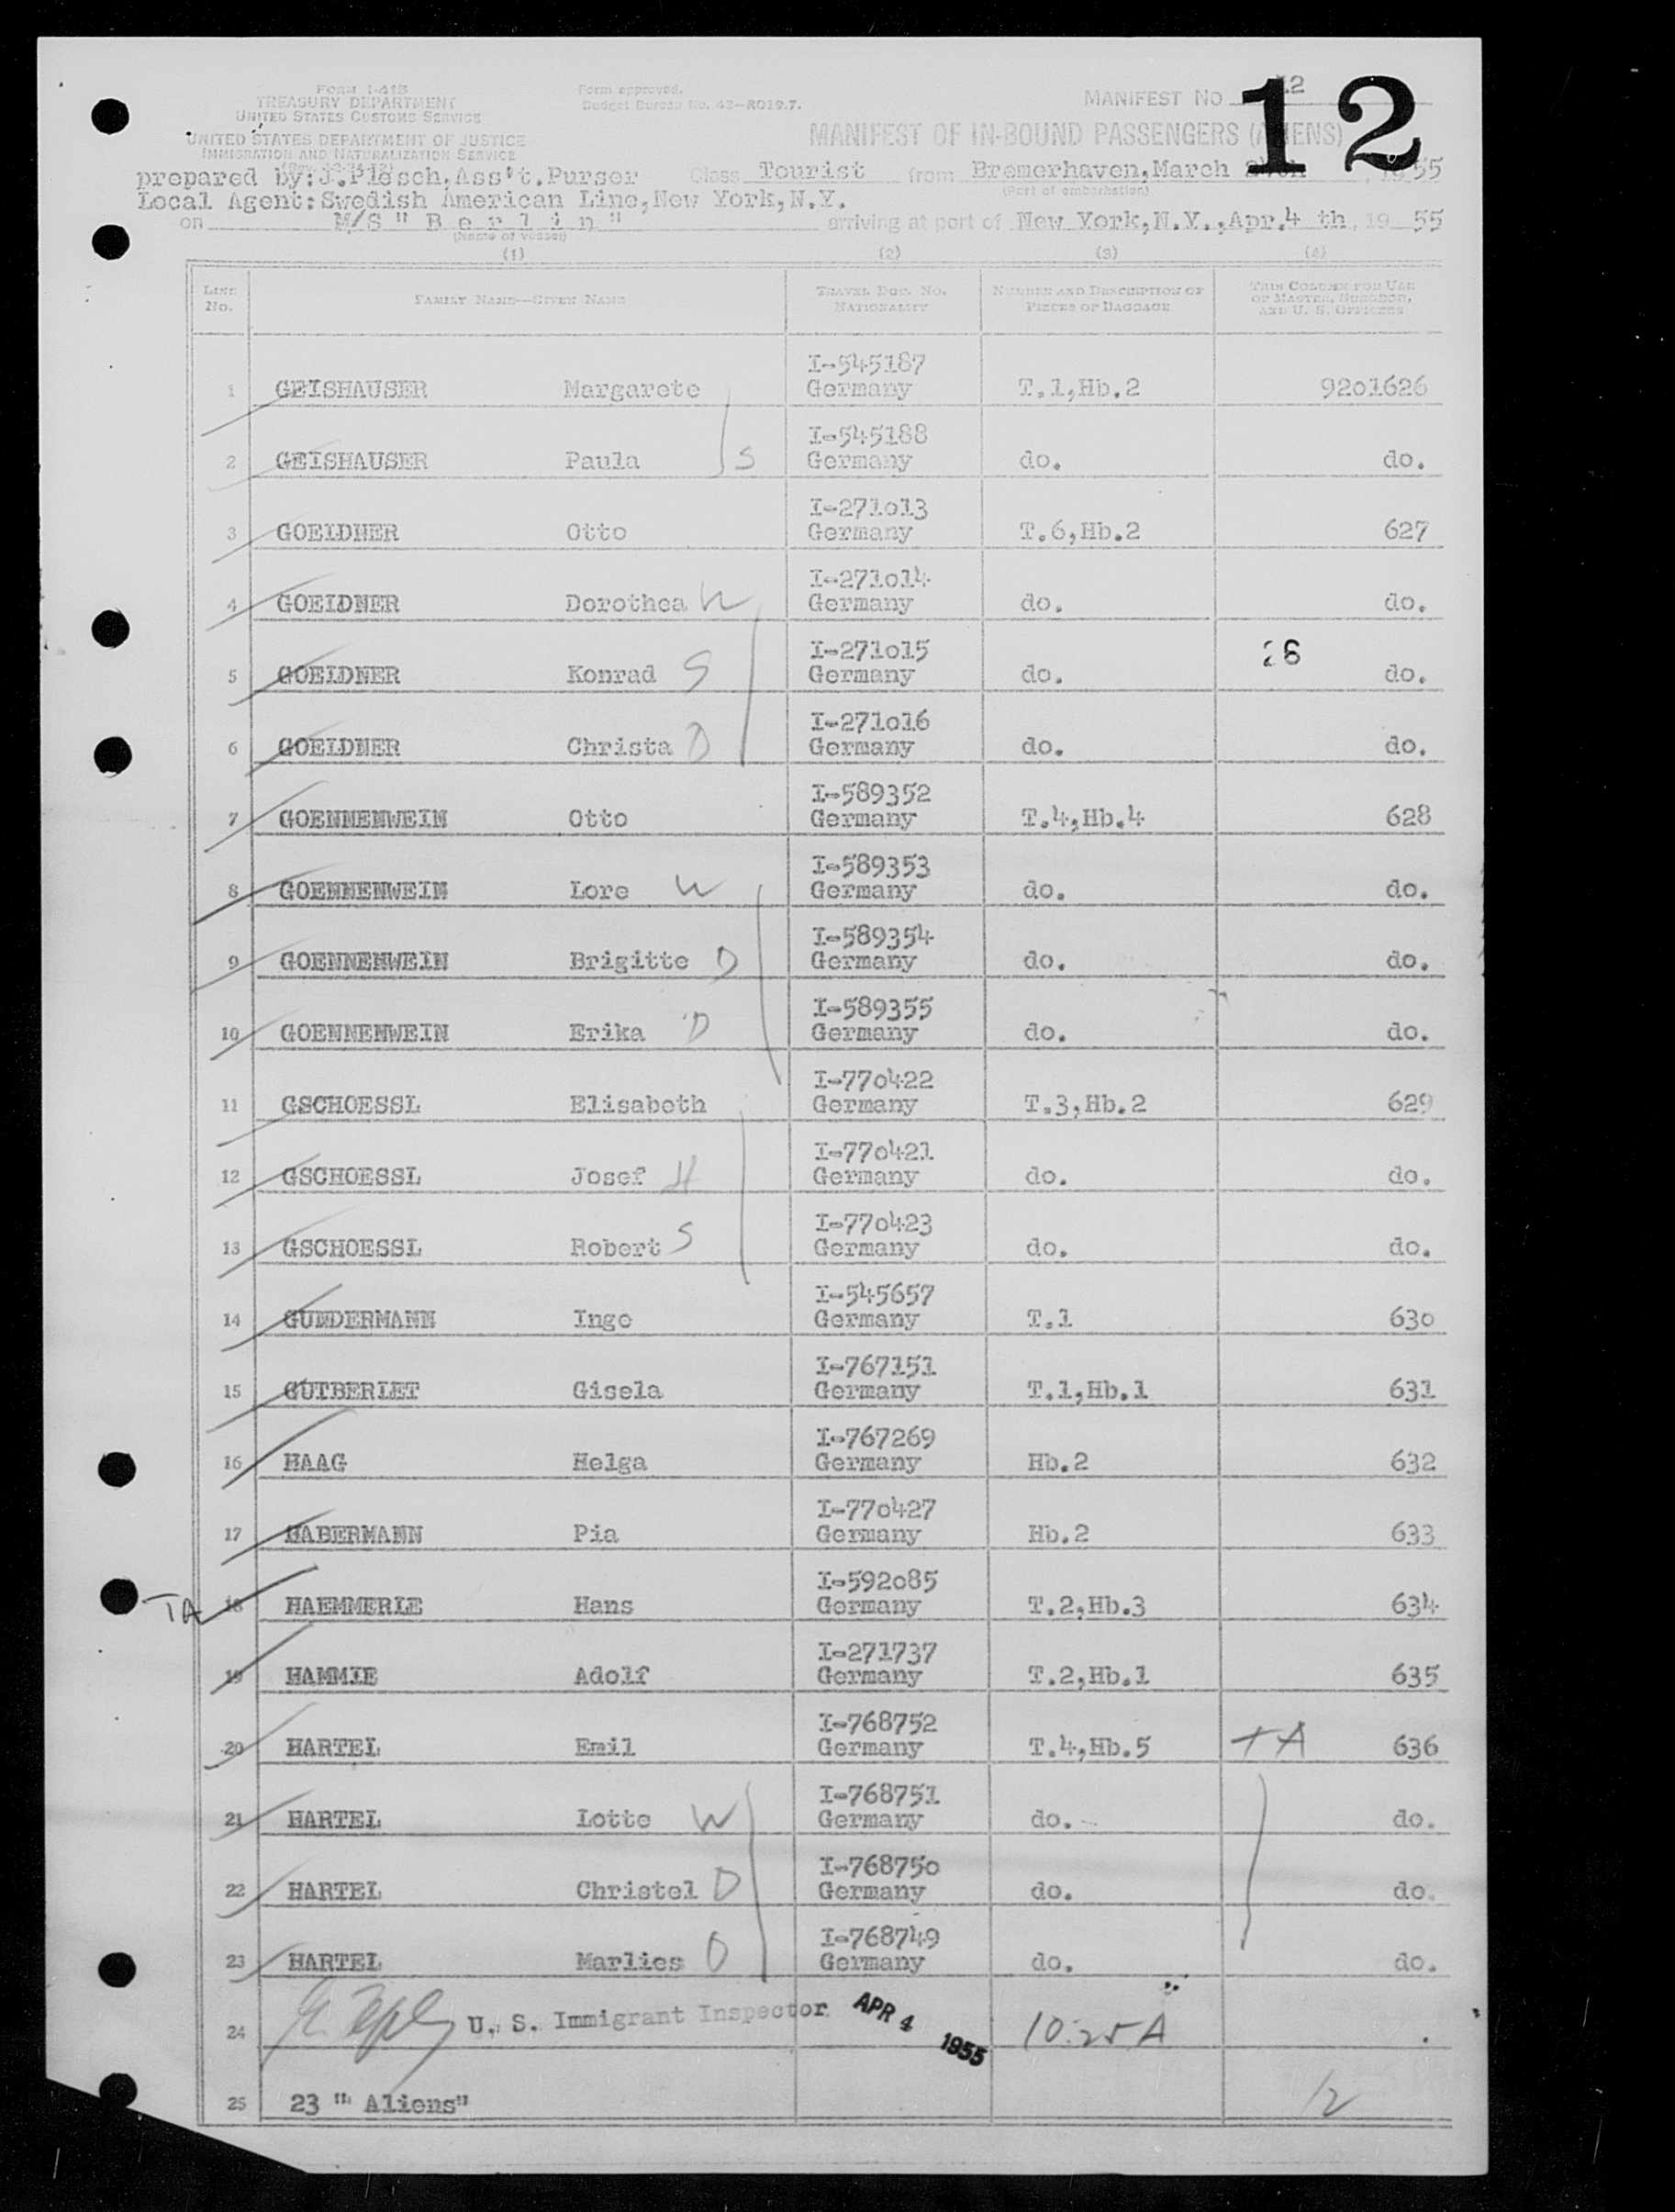 Form I-418
TREASURY DEPARTMENT
UNITED STATES CUSTOMS SERVICE
UNITED STATES DEPARTMENT OF JUSTICE
IMMIGRATION AND NATURALIZATION SERVICE
Form approved.
Budget Bureau No. 43—R019.7.
MANIFEST NO 12
12
MANIFEST OF IN-BOUND PASSENGERS (ALIENS)
prepared by:J.Plesch,Ass't.Purser Class Tourist from Bremerhaven,March , 1955
(Port of embarkation)
Local Agent:Swedish American Line,New York,N.Y.
on M/S " B e r l i n " arriving at port of New York,N.Y.,Apr.4 th, 19 55
(Name of vessel)
(1) (2) (3) (4)
LINE No. FAMILY NAME—GIVEN NAME TRAVEL DOC. NO. NATIONALITY NUMBER AND DESCRIPTION OF PIECES OF BAGGAGE THIS COLUMN FOR USE OF MASTER, SURGEON, AND U. S. OFFICERS
I-545187
1 GEISHAUSER Margarete Germany T.1,Hb.2 9201626
I-545188
2 GEISHAUSER Paula S Germany do. do.
I-271013
3 GOEIDNER Otto Germany T.6,Hb.2 627
I-271014
4 GOEIDNER Dorothea W Germany do. do.
I-271015 28
5 GOEIDNER Konrad S Germany do. do.
I-271016
6 GOEIDNER Christa D Germany do. do.
I-589352
7 GOENNENWEIN Otto Germany T.4,Hb.4 628
I-589353
8 GOENNENWEIN Lore W Germany do. do.
I-589354
9 GOENNENWEIN Brigitte D Germany do. do.
I-589355
10 GOENNENWEIN Erika D Germany do. do.
I-770422
11 GSCHOESSL Elisabeth Germany T.3,Hb.2 629
I-770421
12 GSCHOESSL Josef H Germany do. do.
I-770423
13 GSCHOESSL Robert S Germany do. do.
I-545657
14 GUNDERMANN Inge Germany T.1 630
I-767151
15 GUTBERLET Gisela Germany T.1,Hb.1 631
I-767269
16 HAAG Helga Germany Hb.2 632
I-770427
17 HABERMANN Pia Germany Hb.2 633
I-592085
TA 18 HAEMMERLE Hans Germany T.2,Hb.3 634
I-271737
19 HAMMIE Adolf Germany T.2,Hb.1 635
I-768752
20 HARTEL Emil Germany T.4,Hb.5 TA 636
I-768751
21 HARTEL Lotte W Germany do. do.
I-768750
22 HARTEL Christel D Germany do. do.
I-768749
23 HARTEL Marlies D Germany do. do.
24 U. S. Immigrant Inspector APR 4 1955 10:25 A
25 23 " Aliens" 12